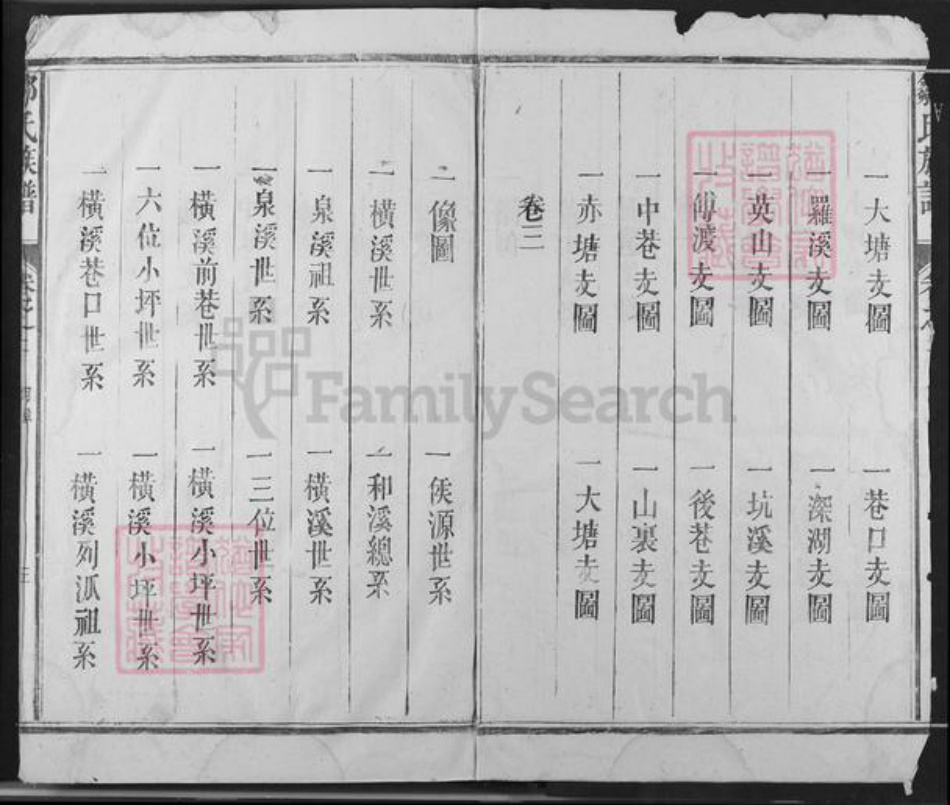 一大塘支圖 一巷口支圖
一羅溪支圖 一深湖支圖
一英山支圖 一坑溪支圖
一傅渡支圖 一後巷支圖
一中巷支圖 一山裏支圖
一赤塘支圖 一大塘支圖
卷三
一像圖 一侯源世系
一橫溪世系 一和溪總系
一泉溪祖系 一橫溪世系
一泉溪世系 一三位世系
一橫溪前巷世系 一橫溪小坪世系
一六位小坪世系 一橫溪小坪世系
一橫溪巷口世系 一橫溪列派祖系
鄒氏族譜
FamilySearch